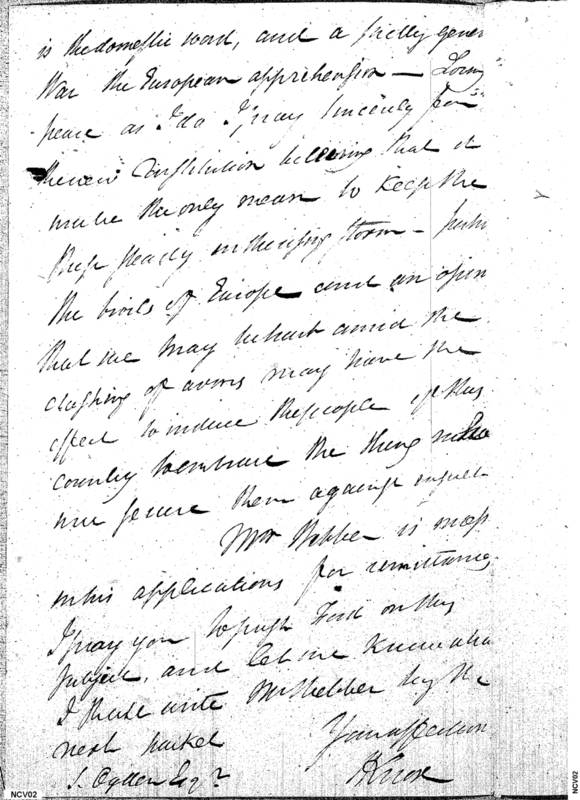 is the domestic word, and a pretty gener
War the European apprehension — Loving
peace as I do I pray sincerely for
the new Constitution believing that it
may be the only mean to keep the
Ship steady in the rising storm —
the broils of Europe and an opin
that we may be hurt amid the
clashing of arms may have the
effect to induce the people of this
country to embrace the thing
will secure them against
Mr Webber is
in his applications for remittances
I pray you to push Ford on this
subject, and let me know wha
I shall write Mr Webber by the
next packet
Your affection
S. Ogden Esqr
HKnox
NCV02
NCV02